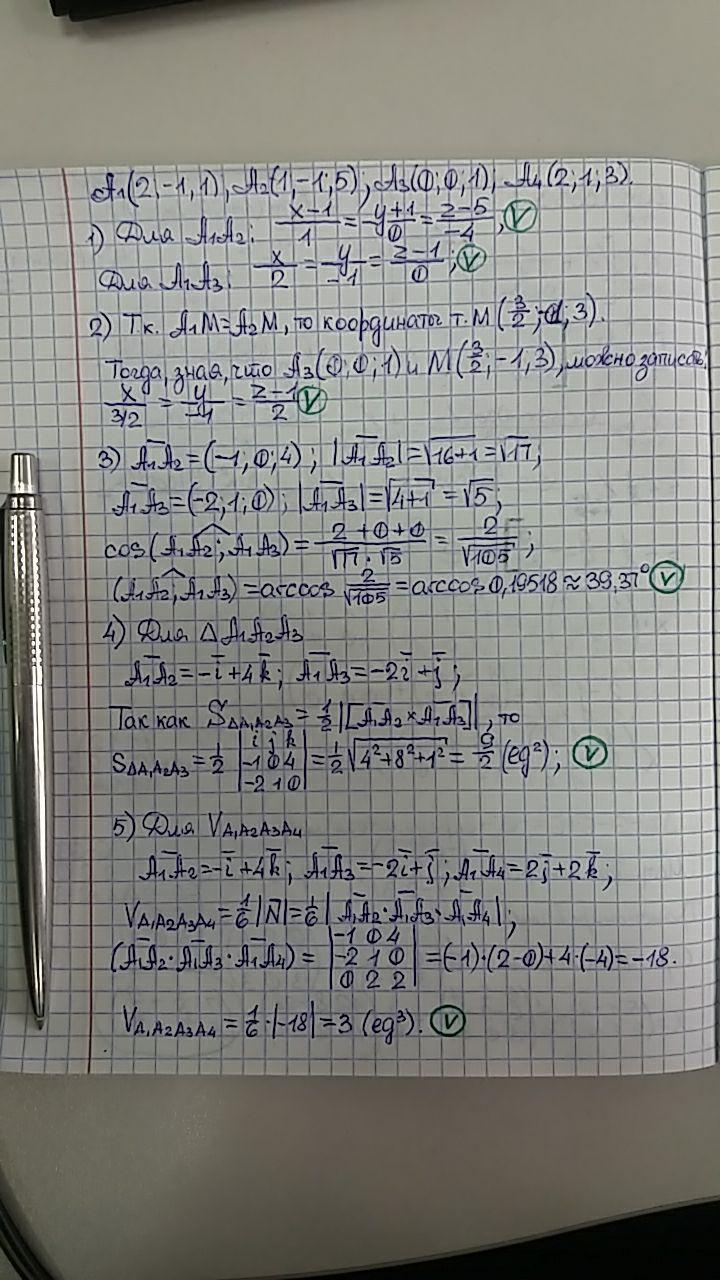 A₁(2,-1,1), A₂(1,-1;5), A₃(0;0;1), A₄(2;1;3).
1) Для A₁A₂: (x-1)/1 = (y+1)/0 = (z-5)/-4, V
Для A₁A₃: x/2 = y/-1 = (z-1)/0; V
2) Т.к. A₁M=A₂M, то координаты т. M(3/2;-1;3).
Тогда, зная, что A₃(0;0;1) и M(3/2;-1,3), можно записать:
x/(3/2) = y/-1 = (z-1)/2 V
3) A₁A₂=(-1;0;4); |A₁A₂|=√(16+1)=√17;
A₁A₃=(-2;1;0); |A₁A₃|=√(4+1)=√5;
cos(A₁A₂; A₁A₃) = (2+0+0)/(√17·√5) = 2/√105;
(A₁A₂; A₁A₃) = arccos 2/√105 = arccos 0,19518 ≈ 39,37° V
4) Для △A₁A₂A₃
A₁A₂=-i+4k; A₁A₃=-2i+j;
Так как S△A₁A₂A₃=½|[A₁A₂×A₁A₃]|, то
S△A₁A₂A₃=½ |i j k; -1 0 4; -2 1 0| = ½√(4²+8²+1²) = 9/2 (ед²); V
5) Для V A₁A₂A₃A₄
A₁A₂=-i+4k; A₁A₃=-2i+j; A₁A₄=2j+2k;
V A₁A₂A₃A₄=1/6|N|=1/6|A₁A₂·A₁A₃·A₁A₄|;
(A₁A₂·A₁A₃·A₁A₄) = |-1 0 4; -2 1 0; 0 2 2| = (-1)·(2-0)+4·(-4)=-18.
V A₁A₂A₃A₄=1/6·|-18|=3 (ед³). V